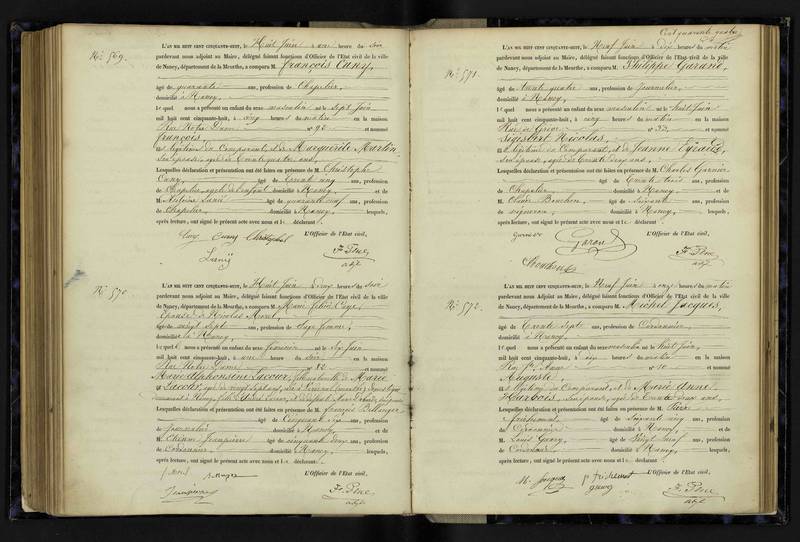 N.º 569.
L'AN MIL HUIT CENT CINQUANTE-HUIT, le Huit Juin à une heure du soir
pardevant nous Adjoint au Maire, délégué faisant fonctions d'Officier de l'Etat civil de la ville
de Nancy, département de la Meurthe, a comparu M. françois Cuny,
âgé de quarante ans, profession de Chapelier,
domicilié à Nancy,
lequel nous a présenté un enfant du sexe masculin né le Sept Juin
mil huit cent cinquante-huit, à cinq heures du matin en la maison
Rue Notre Dame n° 92 et nommé
françois,
fils légitime du Comparant, et de Marguerite Martin,
Son épouse, agée de trente quatre ans,
Lesquelles déclaration et présentation ont été faites en présence de M. Christophe
Cuny, âgé de trente cinq ans, profession
de Chapelier, oncle de l'enfant domicilié à Nancy et de
M. âgé de quarante neuf ans, profession
de Chapelier, domicilié à Nancy, lesquels,
après lecture, ont signé le présent acte avec nous et le déclarant
L'Officier de l'Etat civil,
Cuny Cuny Christophe
F. Pône
adjt
N.º 570.
L'AN MIL HUIT CENT CINQUANTE-HUIT, le Huit Juin à deux heures du soir
pardevant nous Adjoint au Maire, délégué faisant fonctions d'Officier de l'Etat civil de la ville
de Nancy, département de la Meurthe, a comparu Marie félicité
Epouse de Nicolas Morel,
âgée de vingt sept ans, profession de Sage femme,
domiciliée à Nancy,
lequelle nous a présenté un enfant du sexe féminin né le Six Juin
mil huit cent cinquante-huit, à une heure du soir en la maison
Rue Notre Dame n° 82 et nommé
Marie Alphonsine Lacour, fille naturelle de Marie
Lacour, agée de vingt sept ans,
Lesquelles déclaration et présentation ont été faites en présence de M. françois Bellanger
âgé de Cinquante six ans, profession
de Journalier domicilié à Nancy et de
M. Etienne Jeanpierre âgé de cinquante deux ans, profession
de Cordonnier domicilié à Nancy, lesquels,
après lecture, ont signé le présent acte avec nous et le déclarant
L'Officier de l'Etat civil,
F. Pône
adjt
Cent quarante quatre
N.º 571.
L'AN MIL HUIT CENT CINQUANTE-HUIT, le Neuf Juin à dix heures du matin
pardevant nous Adjoint au Maire, délégué faisant fonctions d'Officier de l'Etat civil de la ville
de Nancy, département de la Meurthe, a comparu M. Philippe Garand,
âgé de trente quatre ans, profession de Journalier,
domicilié à Nancy,
lequel nous a présenté un enfant du sexe masculin né le Huit Juin
mil huit cent cinquante-huit, à cinq heures du matin en la maison
Rue de Grève n° 32, et nommé
Sigisbert Nicolas,
fils légitime du Comparant, et de Jeanne
Son épouse, agée de trente cinq ans,
Lesquelles déclaration et présentation ont été faites en présence de M. Charles Garnier
âgé de trente trois ans, profession
de Chapelier domicilié à Nancy, et de
M. Olivier âgé de Soixante ans, profession
de vigneron domicilié à Nancy, lesquels,
après lecture, ont signé le présent acte avec nous et le déclarant
L'Officier de l'Etat civil,
Garnier Ch
F. Pône
adjt
N.º 572.
L'AN MIL HUIT CENT CINQUANTE-HUIT, le Neuf Juin à onze heures du matin
pardevant nous Adjoint au Maire, délégué faisant fonctions d'Officier de l'Etat civil de la ville
de Nancy, département de la Meurthe, a comparu M. Michel Jacques,
âgé de trente sept ans, profession de Cordonnier
domicilié à Nancy,
lequel nous a présenté un enfant du sexe masculin né le Huit Juin,
mil huit cent cinquante-huit, à dix heures du matin en la maison
Rue Ste Anne n° 10 et nommé
Auguste,
fils légitime du Comparant, et de Marie Anne
Harbois, Son épouse, agée de trente deux ans,
Lesquelles déclaration et présentation ont été faites en présence de M. Pierre
âgé de Soixante cinq ans, profession
de Cordonnier domicilié à Nancy, et de
M. Louis âgé de Vingt neuf ans, profession
de Cordonnier domicilié à Nancy, lesquels,
après lecture, ont signé le présent acte avec nous et le déclarant
L'Officier de l'Etat civil,
M. Jacques
F. Pône
adjt